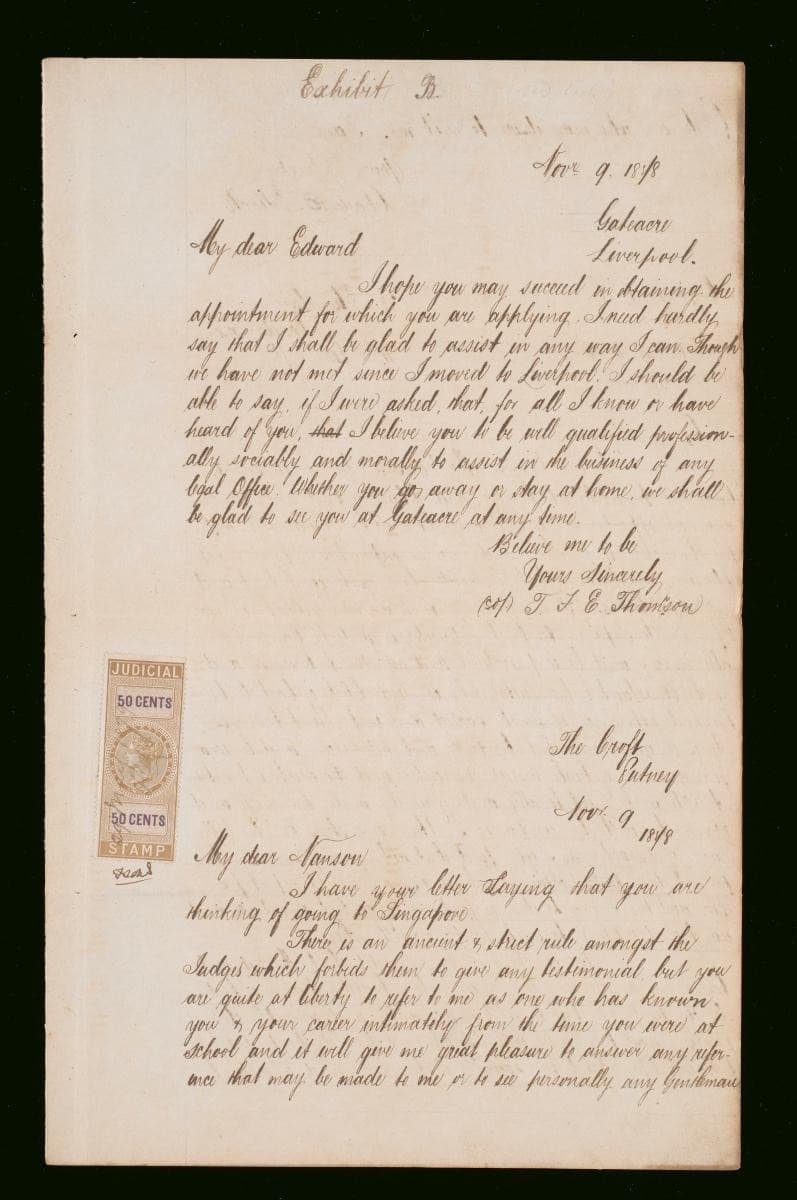 Exhibit B.
Novr 9. 1878
Gateacre
Liverpool.
My dear Edward
I hope you may succeed in obtaining the
appointment for which you are applying. I need hardly
say that I shall be glad to assist in any way I can. Though
we have not met since I moved to Liverpool. I should be
able to say, if I were asked, that, for all I know or have
heard of you, that I believe you to be well qualified profession-
ally sociably and morally to assist in the business of any
legal Office. Whether you go away or stay at home, we shall
be glad to see you at Gateacre at any time.
Believe me to be
Yours Sincerely
T. F. E. Thompson
JUDICIAL
50 CENTS
50 CENTS
STAMP
The Croft
Putney
Novr 9
1878
My dear Nanson
I have your letter Saying that you are
thinking of going to Singapore.
There is an ancient & strict rule amongst the
Judges which forbids them to give any testimonial but you
are quite at liberty to refer to me as one who has known
you & your career intimately from the time you were at
school and it will give me great pleasure to answer any refer-
ence that may be made to me or to see personally any Gentleman